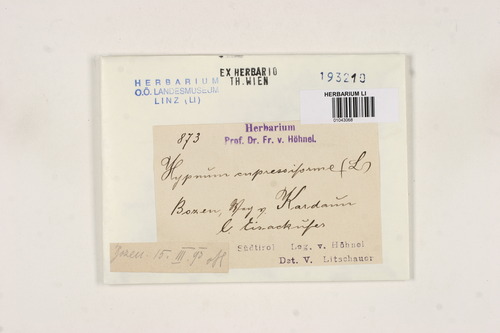 HERBARIUM
O.Ö. LANDESMUSEUM
LINZ (LI)
EX HERBARIO
TH. WIEN
193210
HERBARIUM LI
01043068
Herbarium
Prof. Dr. Fr. v. Höhnel.
873
Hypnum cupressiforme (L)
Bozen, Weg v. Kardaun
Eisackufer
Südtirol Leg. v. Höhnel
Det. V. Litschauer
15. III. 93